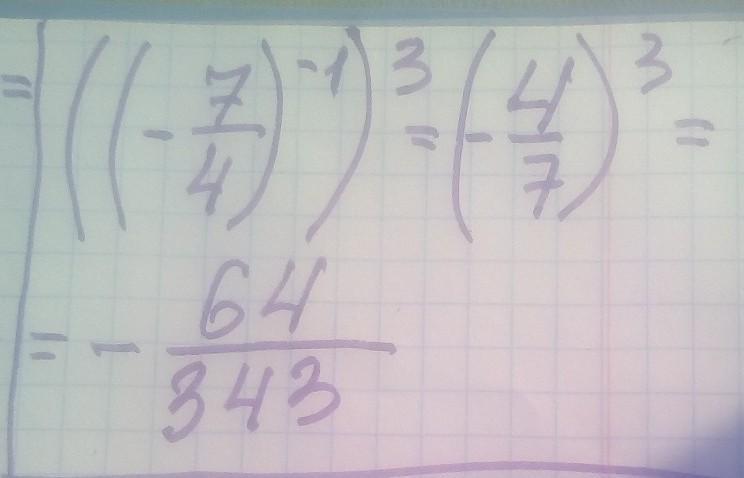 = ((-7/4)^-1)^3 = (-4/7)^3 =
= - 64/343